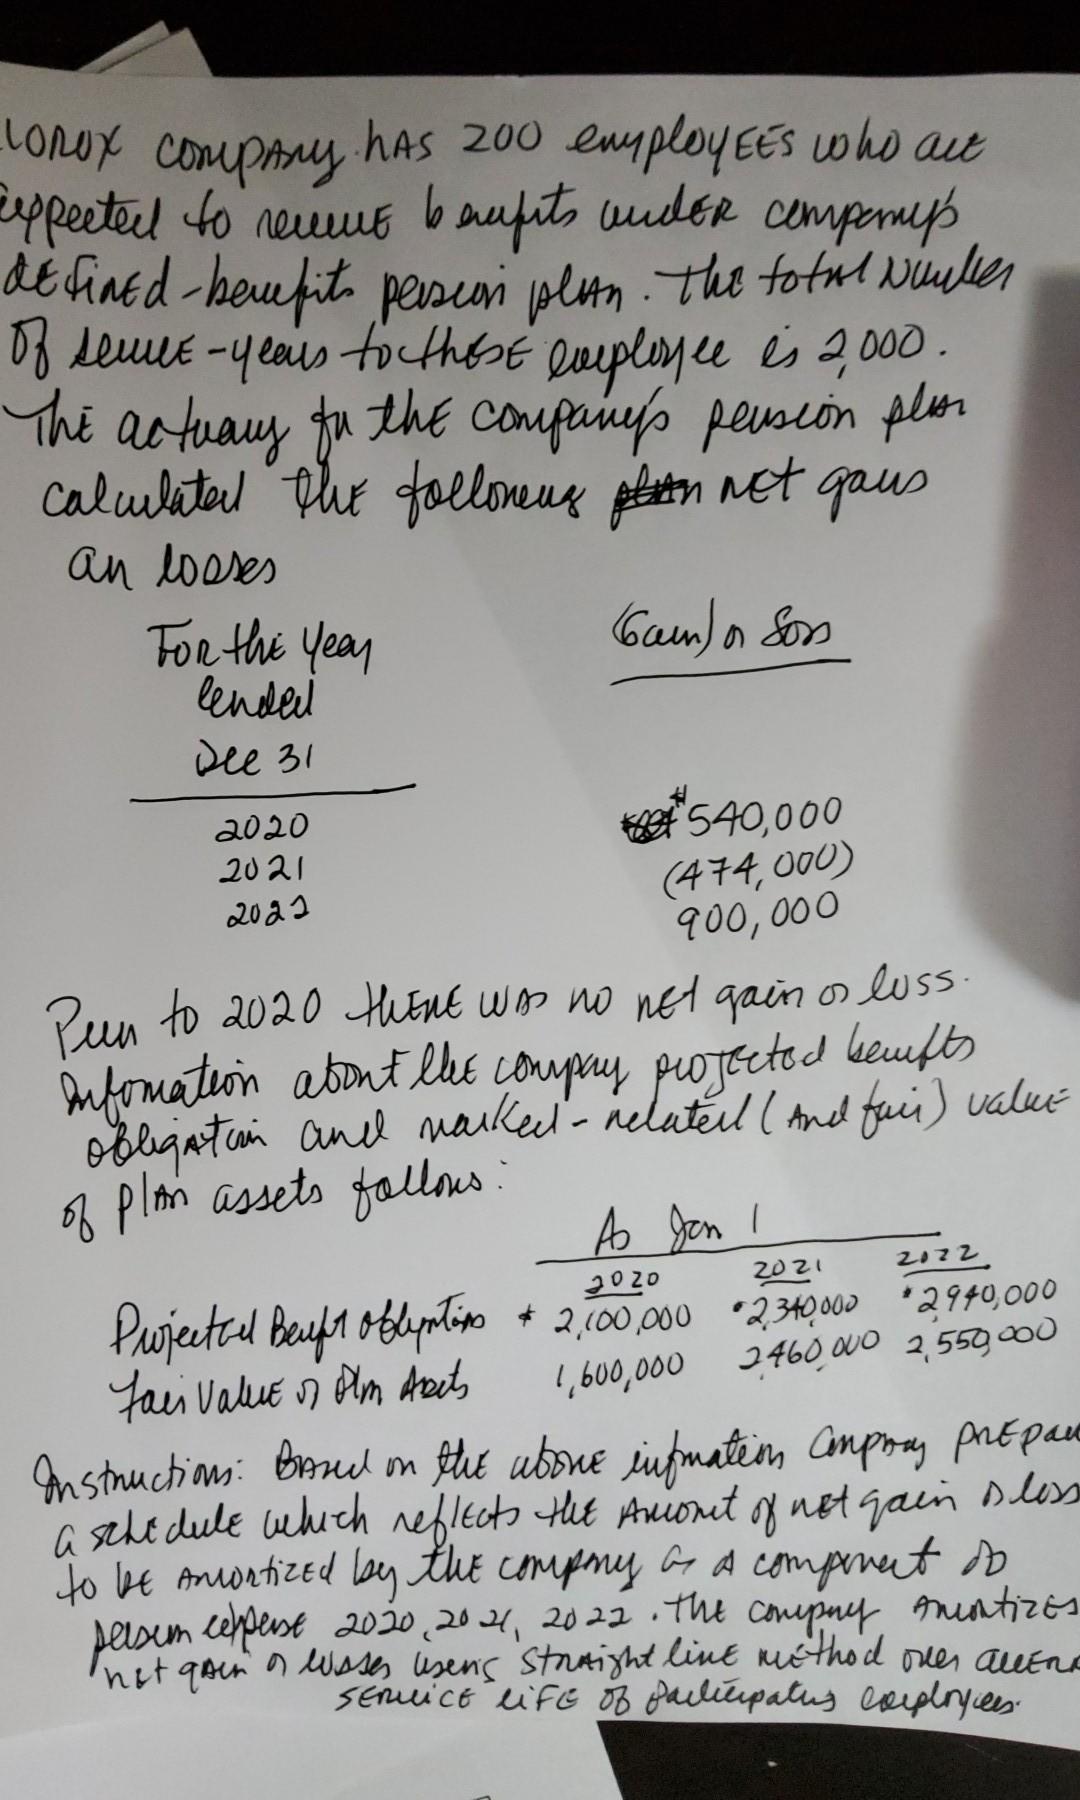 lorox company has 200 employEES who are
expected to receive benefits under company's
defined-benefits pension plan. The total Number
of service-years to these employee is 2,000.
The actuary for the company's pension plan
calculated the following net gains
an losses
For the Year
ended
Dec 31
(Gain) or Loss
2020 $540,000
2021 (474,000)
2022 900,000
Prior to 2020 there was no net gain or loss.
Information about the company projected benefits
obligation and market-related (And fair) value
of plan assets follows:
As Jan 1
2020 2021 2022
Projected Benefit obligations $ 2,100,000 2,340,000 2,940,000
Fair Value of Plan Assets 1,600,000 2,460,000 2,550,000
Instructions: Based on the above information Company prepare
a schedule which reflects the Amount of net gain or loss
to be amortized by the company as a component of
pension expense 2020, 2021, 2022. The company Amortizes
net gain or losses using straight line method over
service life of participating employees.